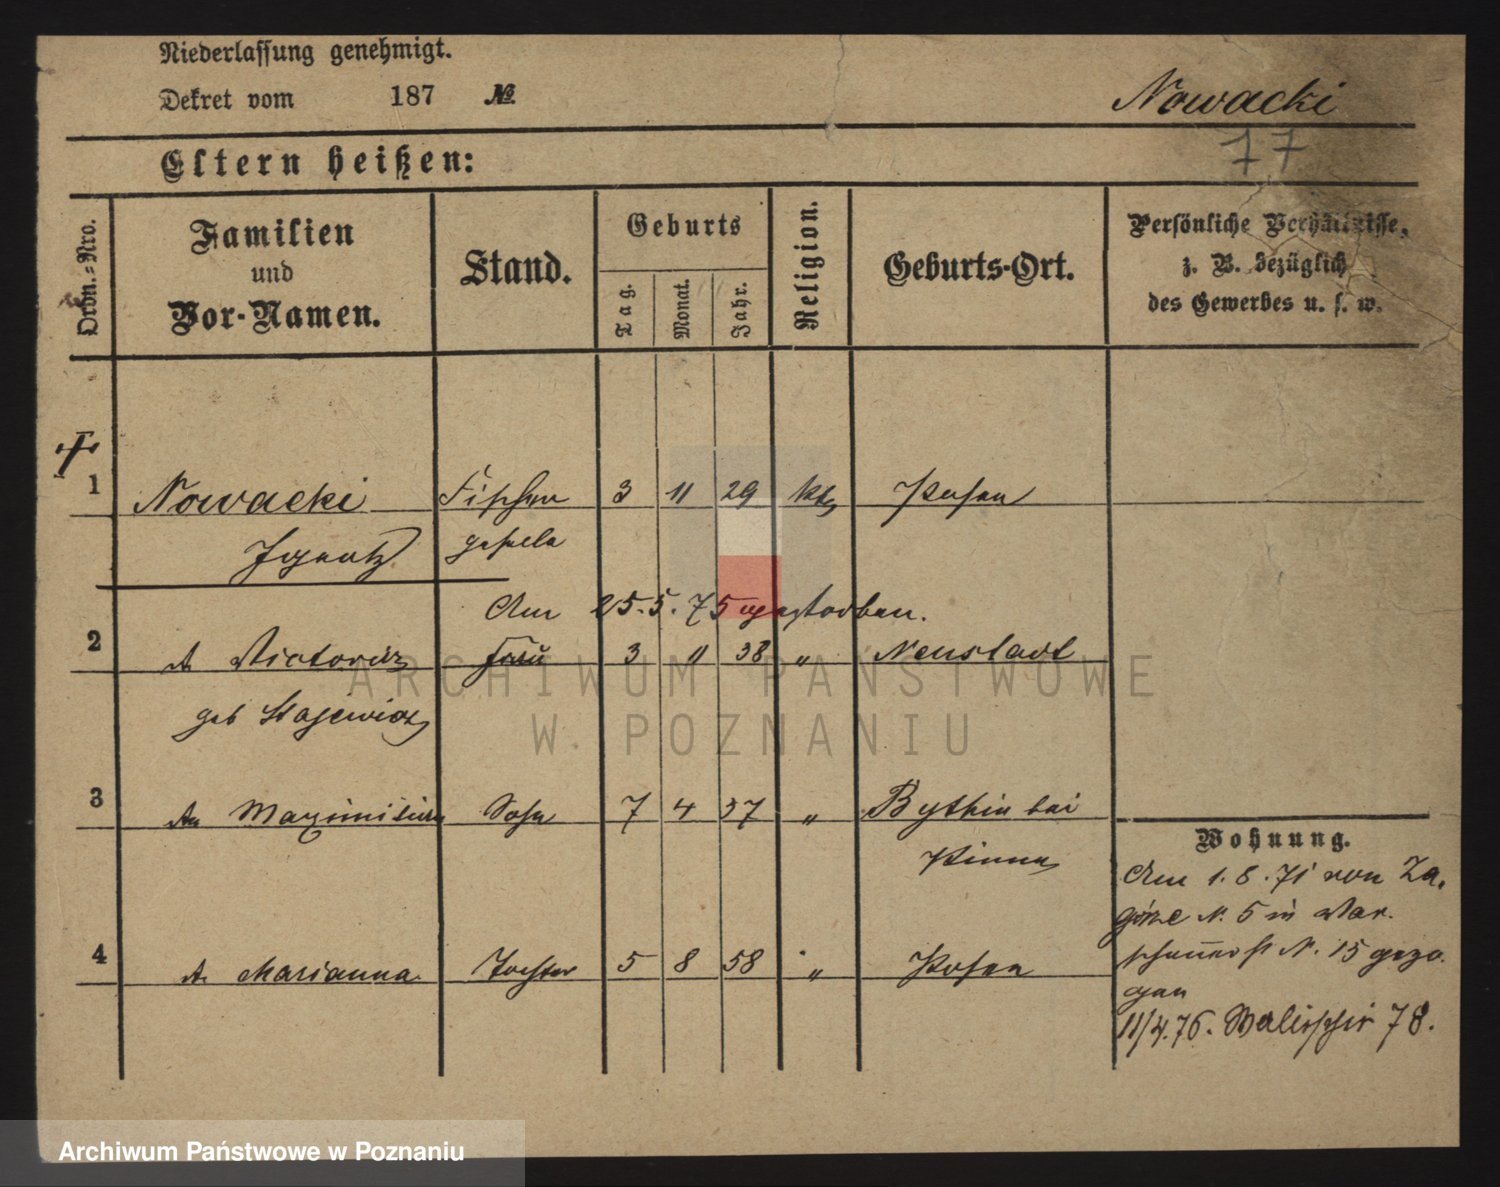 Niederlassung genehmigt.
Dekret vom 187 №
Nowacki
77
Eltern heißen:
Ordn.-Nro.
Familien
und
Vor-Namen.
Stand.
Geburts
Tag.
Monat.
Jahr.
Religion.
Geburts-Ort.
Persönliche Verhältnisse,
z. B. bezüglich
des Gewerbes u. s. w.
1 Nowacki Fischer 3 11 29 kth Posen
Ignatz geselle
Am 25.5.75 gestorben.
2 Victoria Frau 3 11 38 " Neustadt
geb
3 Maximilian Sohn 7 4 57 " Bythin bei
Pinne
4 Marianna Tochter 5 8 58 " Posen
Wohnung.
Am 1.8.71 von Za-
górze N. 5 in War-
schauerst N. 15 gezo-
gen
11/4.76. Wallischei 78.
ARCHIWUM PAŃSTWOWE
W POZNANIU
Archiwum Państwowe w Poznaniu